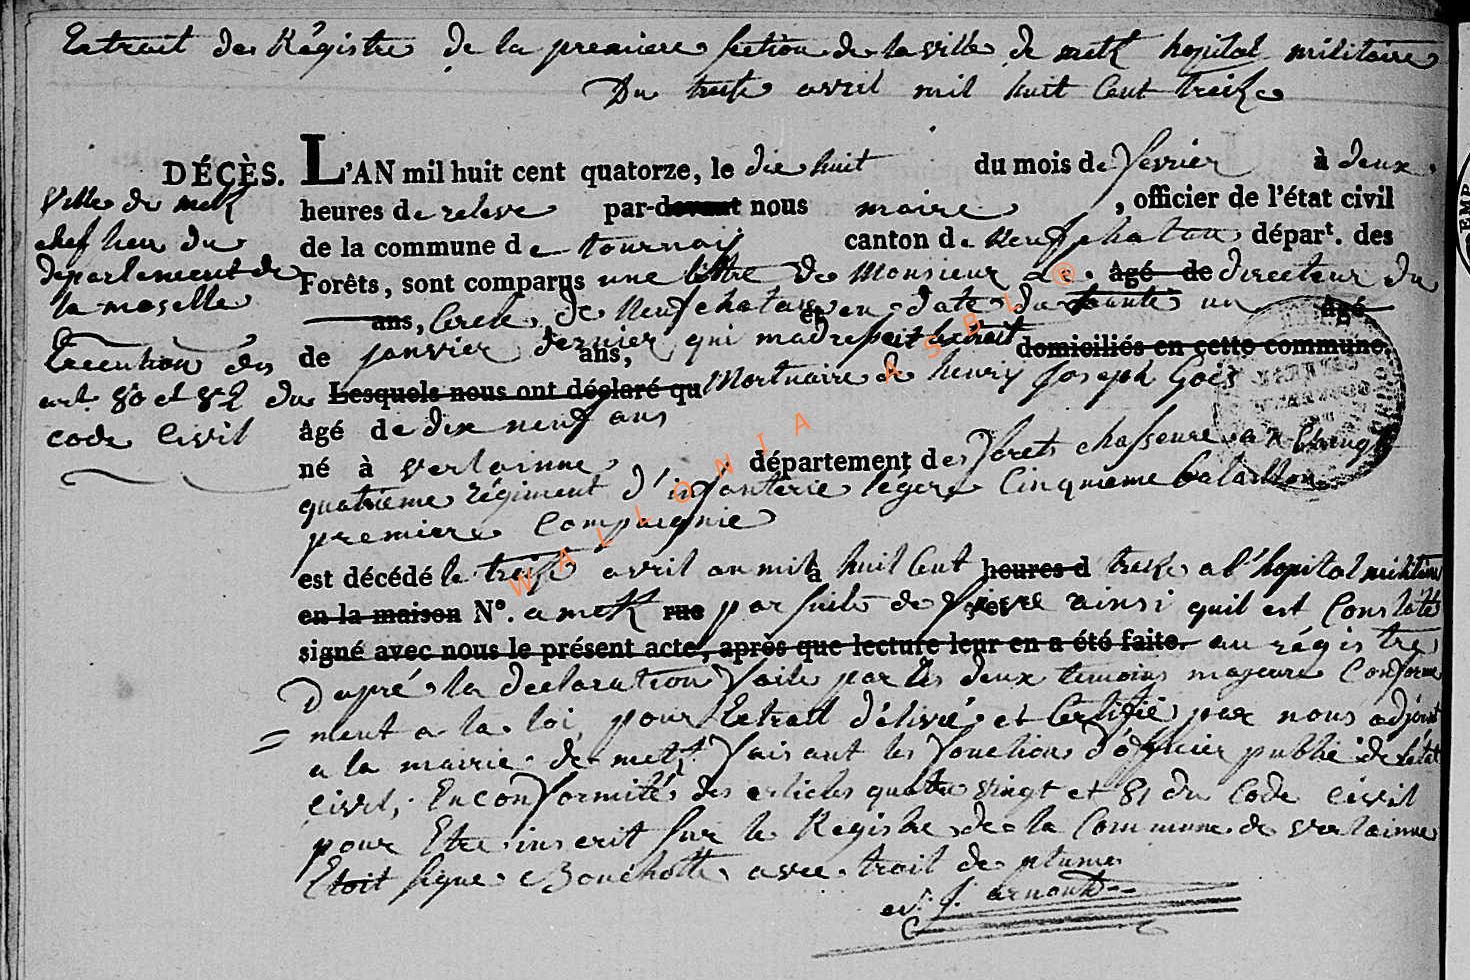 Extrait des Régistre de la premiere section de la ville de metz hopital militaire
Du treize avril mil huit Cent treize
DÉCÈS. L'AN mil huit cent quatorze, le dix huit du mois de fevrier à deux
heures de releve par-devant nous maire , officier de l'état civil
de la commune de tournay canton de Neufchatau départ. des
Forêts, sont comparus une lettre de Monsieur le âgé de directeur du
ans, Cercle de Neufchatau et en date du trente un âgé
de janvier dernier ans, qui madressoit lextrait domiciliés en cette commune
Lesquels nous ont déclaré qu Mortuaire de henry Joseph Goës
âgé de dix neuf ans
né à verlainne département des forets chasseur au vingt
quatrieme régiment d'infanterie légere Cinquieme bataillon
premiere Compagnie
est décédé le treize avril an mil à huit Cent heures d treize a l'hopital militaire
en la maison N°. a metz rue par suite de fievre ainsi quil est Constaté
signé avec nous le présent acte, après que lecture leur en a été faite. au régistre
Dapré la declaration faite par les deux temoins majeure Conforme
= ment a la loi, pour Extrait délivré et Certifié par nous adjoint
a la mairie de metz faisant les fonctions d'officier public de l'état
civil, En conformité des articles quatre vingt et 81 du Code Civil
pour Etre inscrit sur le Registre de la Commune de verlainne
Etoit signe Bouchotte avec trait de plume
arnould
Ville de metz
chef lieu du
departement de
la moselle
Execution des
art. 80 et 82 du
code Civil
WALLONIA ASBL ®
EMP